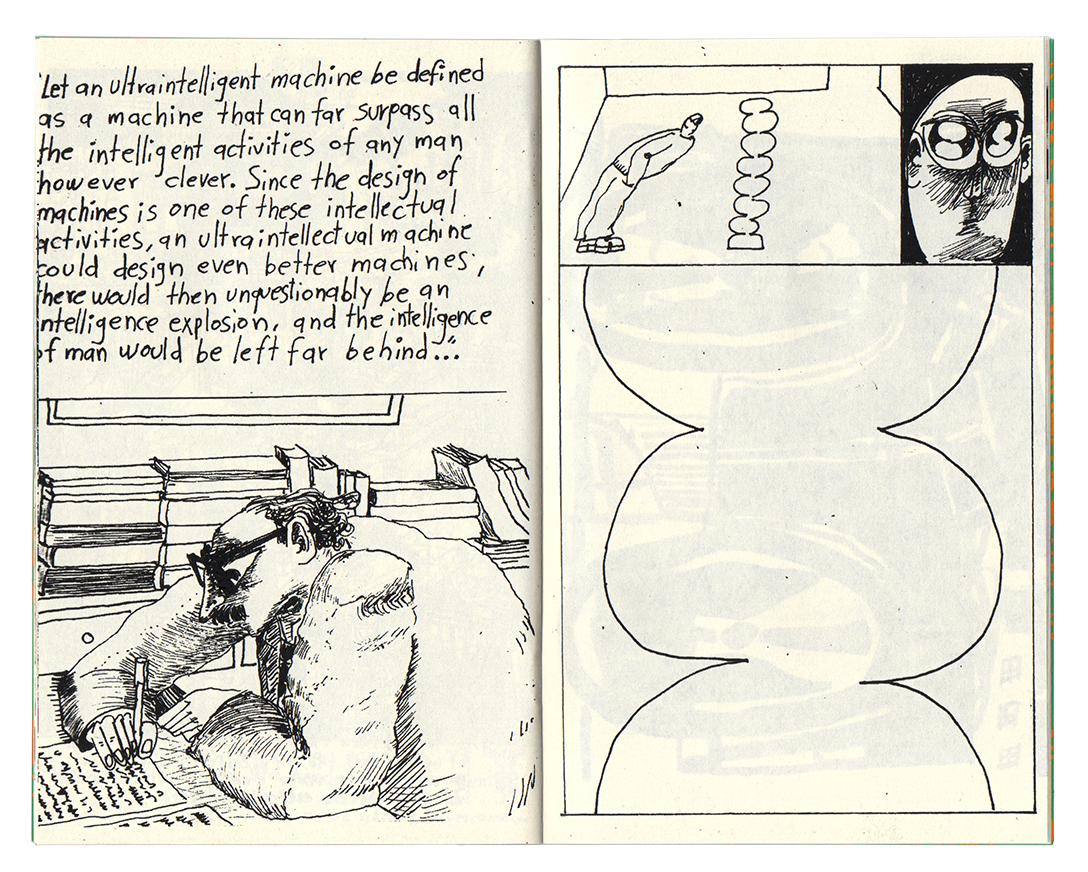 'Let an ultraintelligent machine be defined
as a machine that can far surpass all
the intelligent activities of any man
however clever. Since the design of
machines is one of these intellectual
activities, an ultraintellectual machine
could design even better machines;
there would then unquestionably be an
intelligence explosion, and the intelligence
of man would be left far behind..."